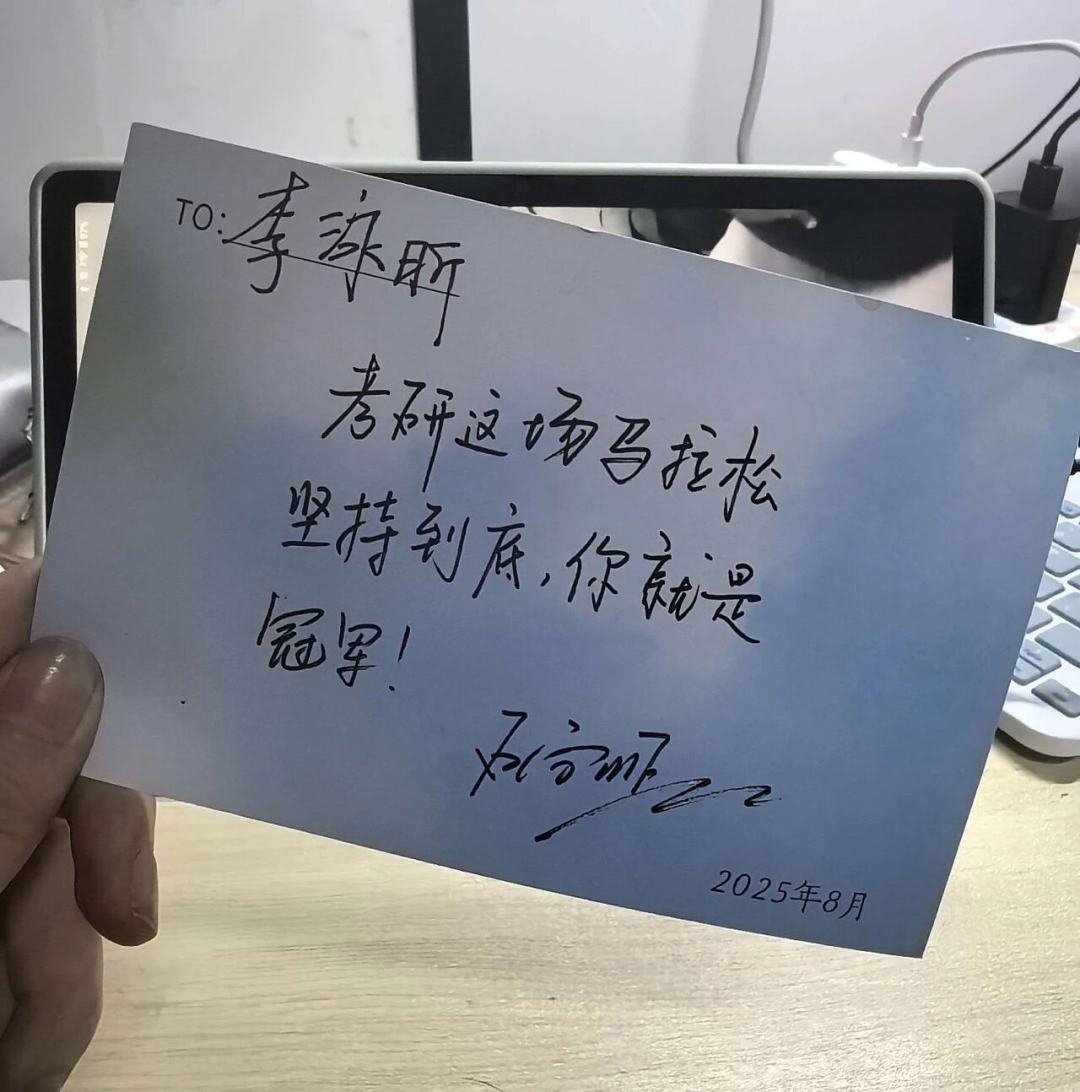 TO: 李泳昕
考研这场马拉松
坚持到底,你就是
冠军!
2025年8月